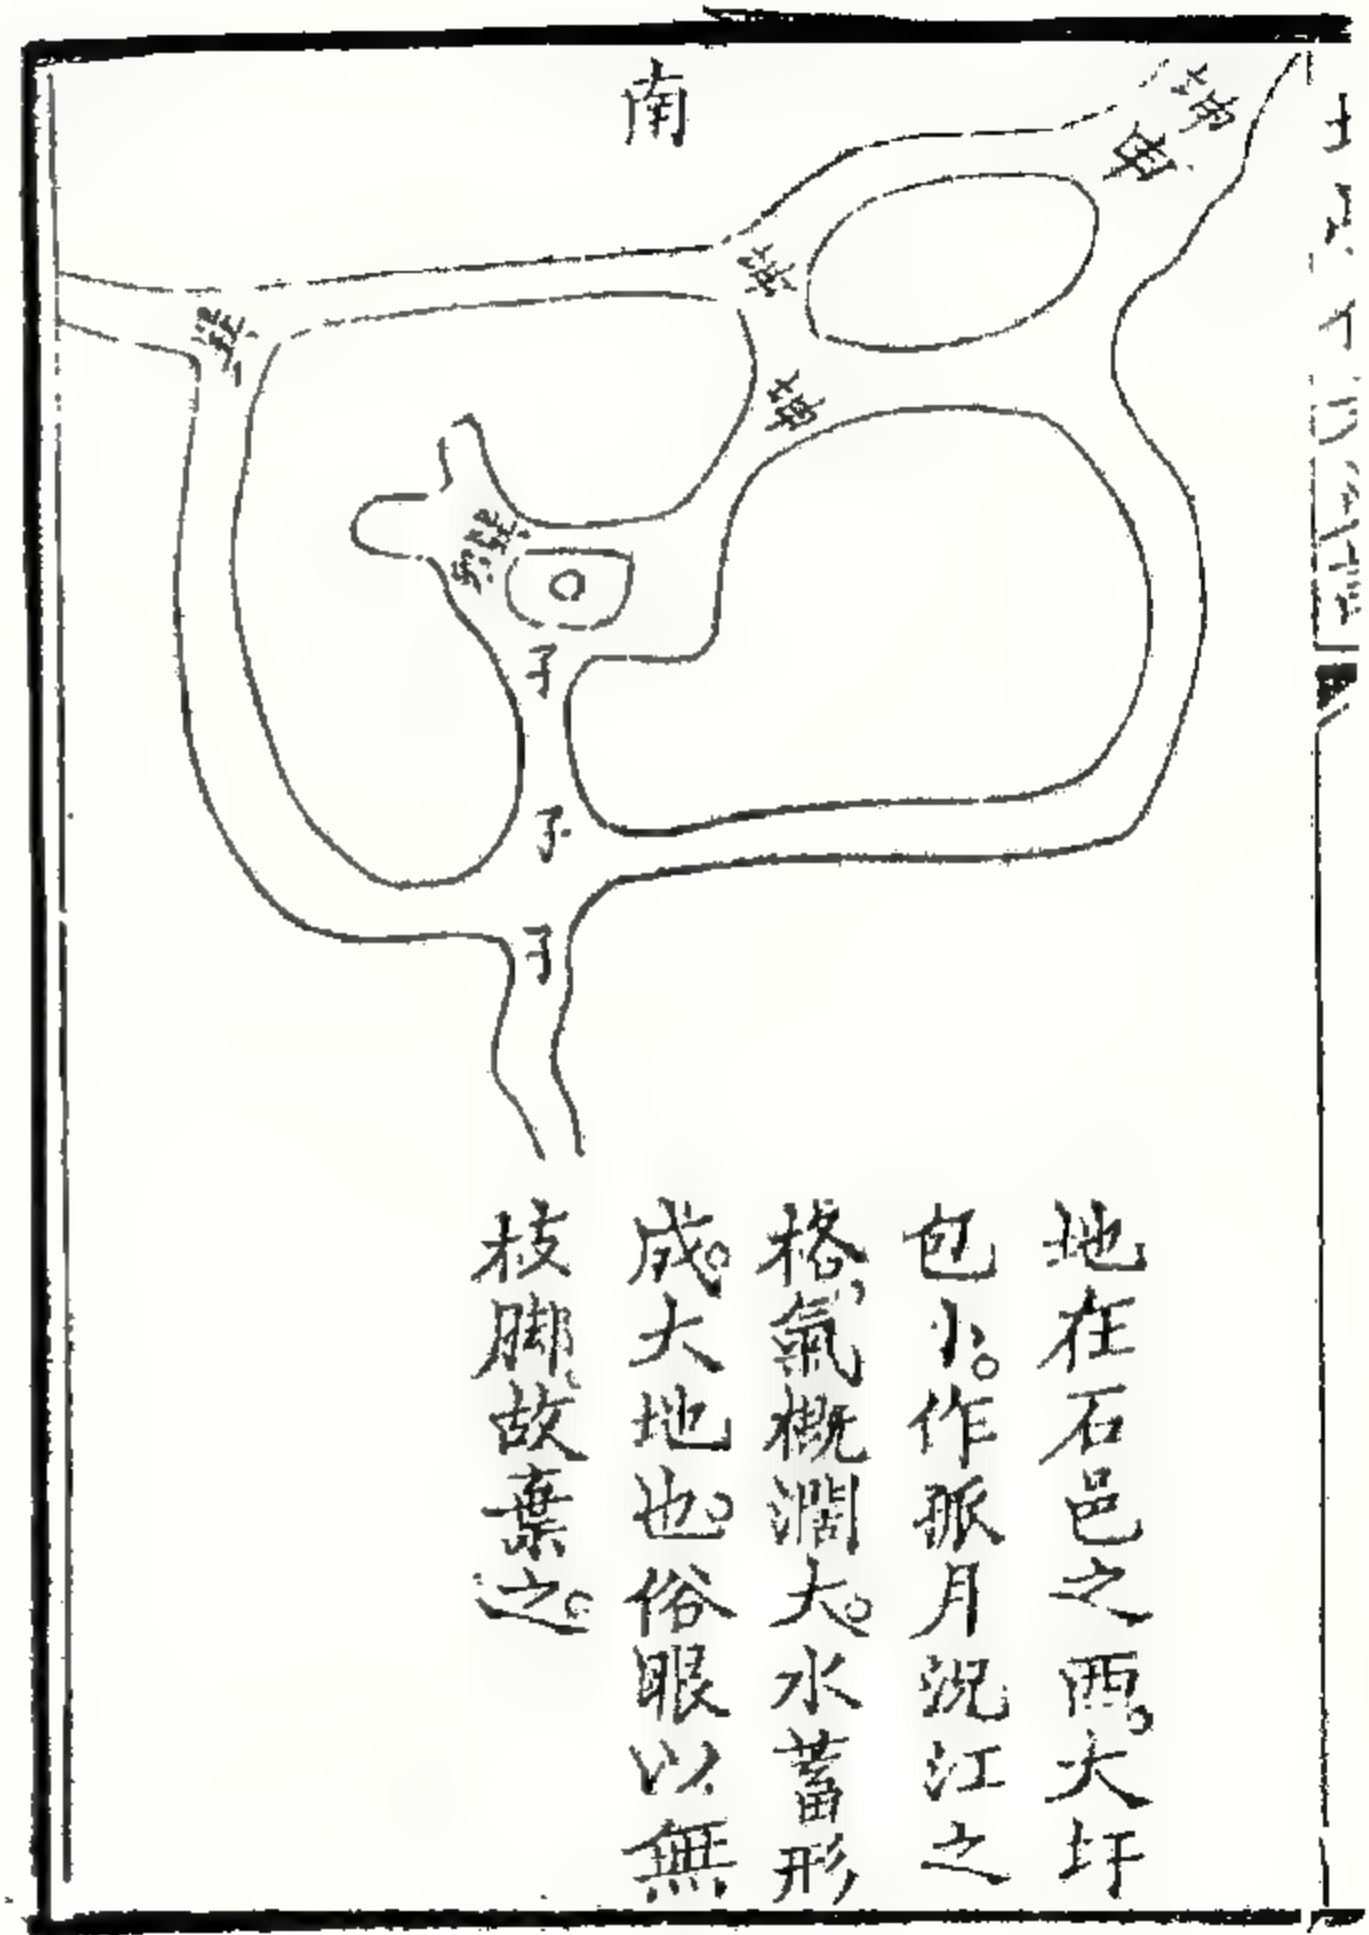 南
申
坤
巽
子
子
子
地在石邑之西。大圩
包小。作孤月沉江之
格，氣概濶大。水蓄形
成。大地也。俗眼以無
枝脚，故棄之。